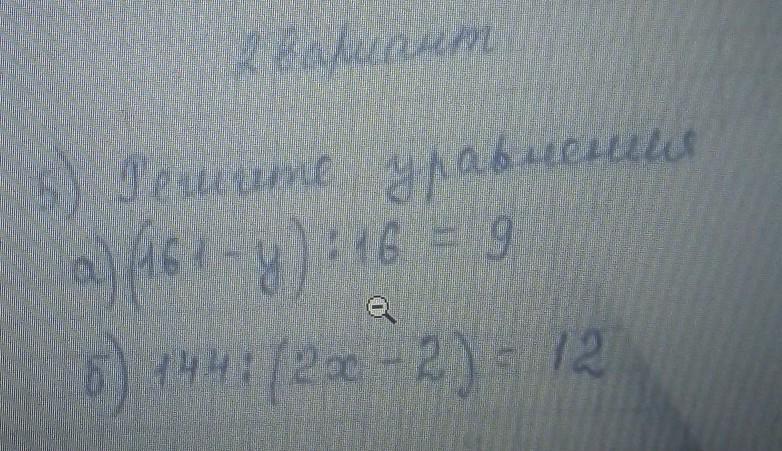 2 вариант
5) Решите уравнения
а) (161 - y) : 16 = 9
б) 144 : (2x - 2) = 12